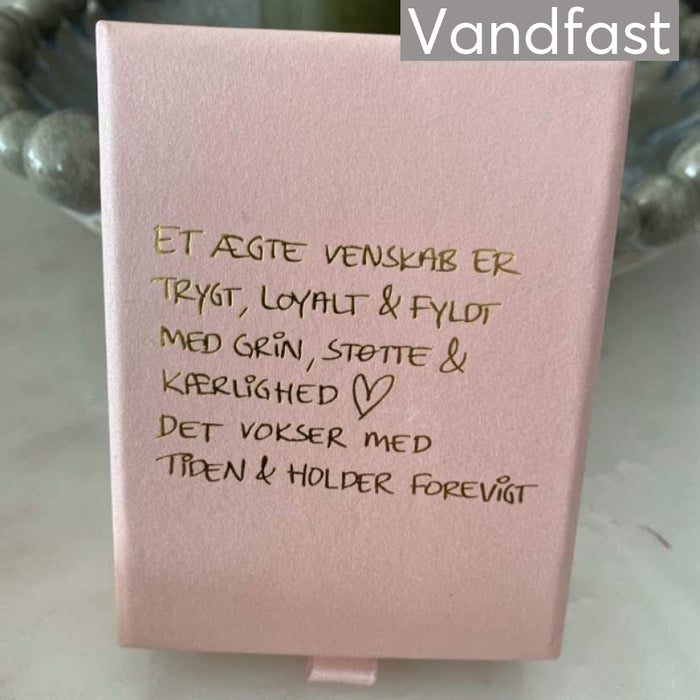 Vandfast
ET ÆGTE VENSKAB ER
TRYGT, LOYALT & FYLDT
MED GRIN, STØTTE &
KÆRLIGHED ♡
DET VOKSER MED
TIDEN & HOLDER FOREVIGT